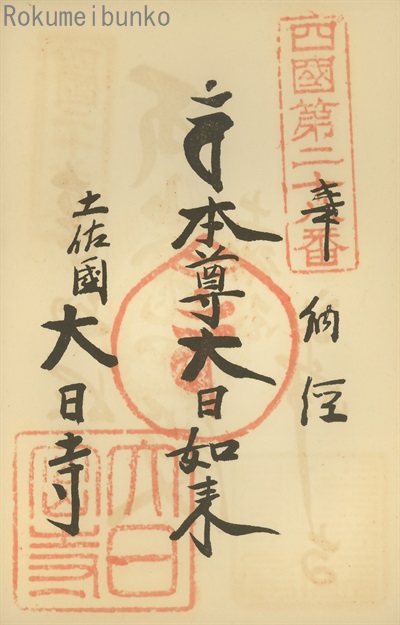 Rokumeibunko
四國第二十八番
奉納経
本尊大日如来
土佐國大日寺
大日寺